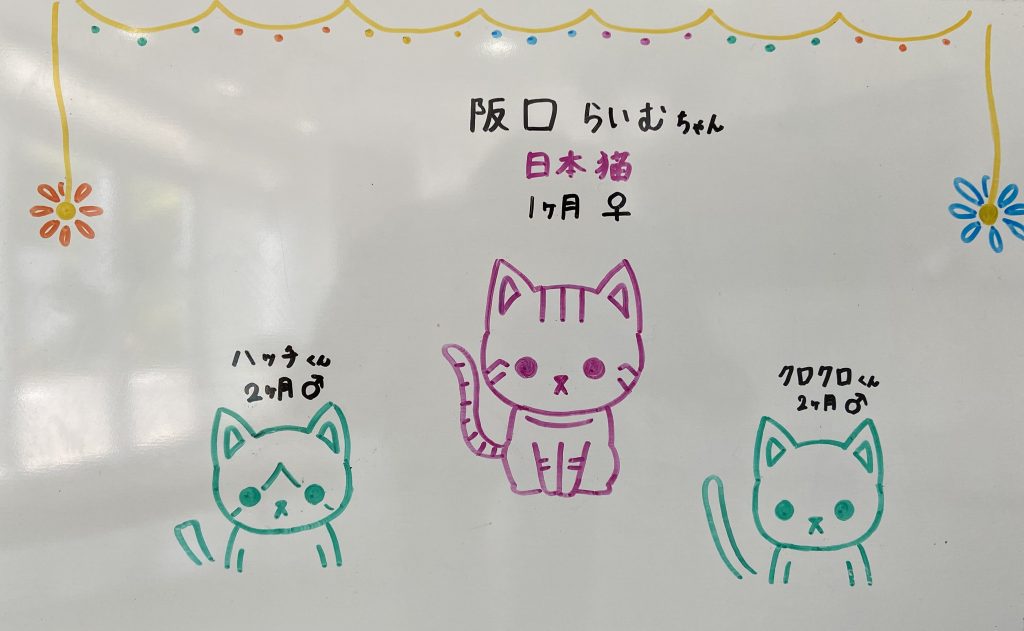 阪口 らいむちゃん
日本猫
1ヶ月 ♀
ハッチくん
2ヶ月 ♂
クロクロくん
2ヶ月 ♂